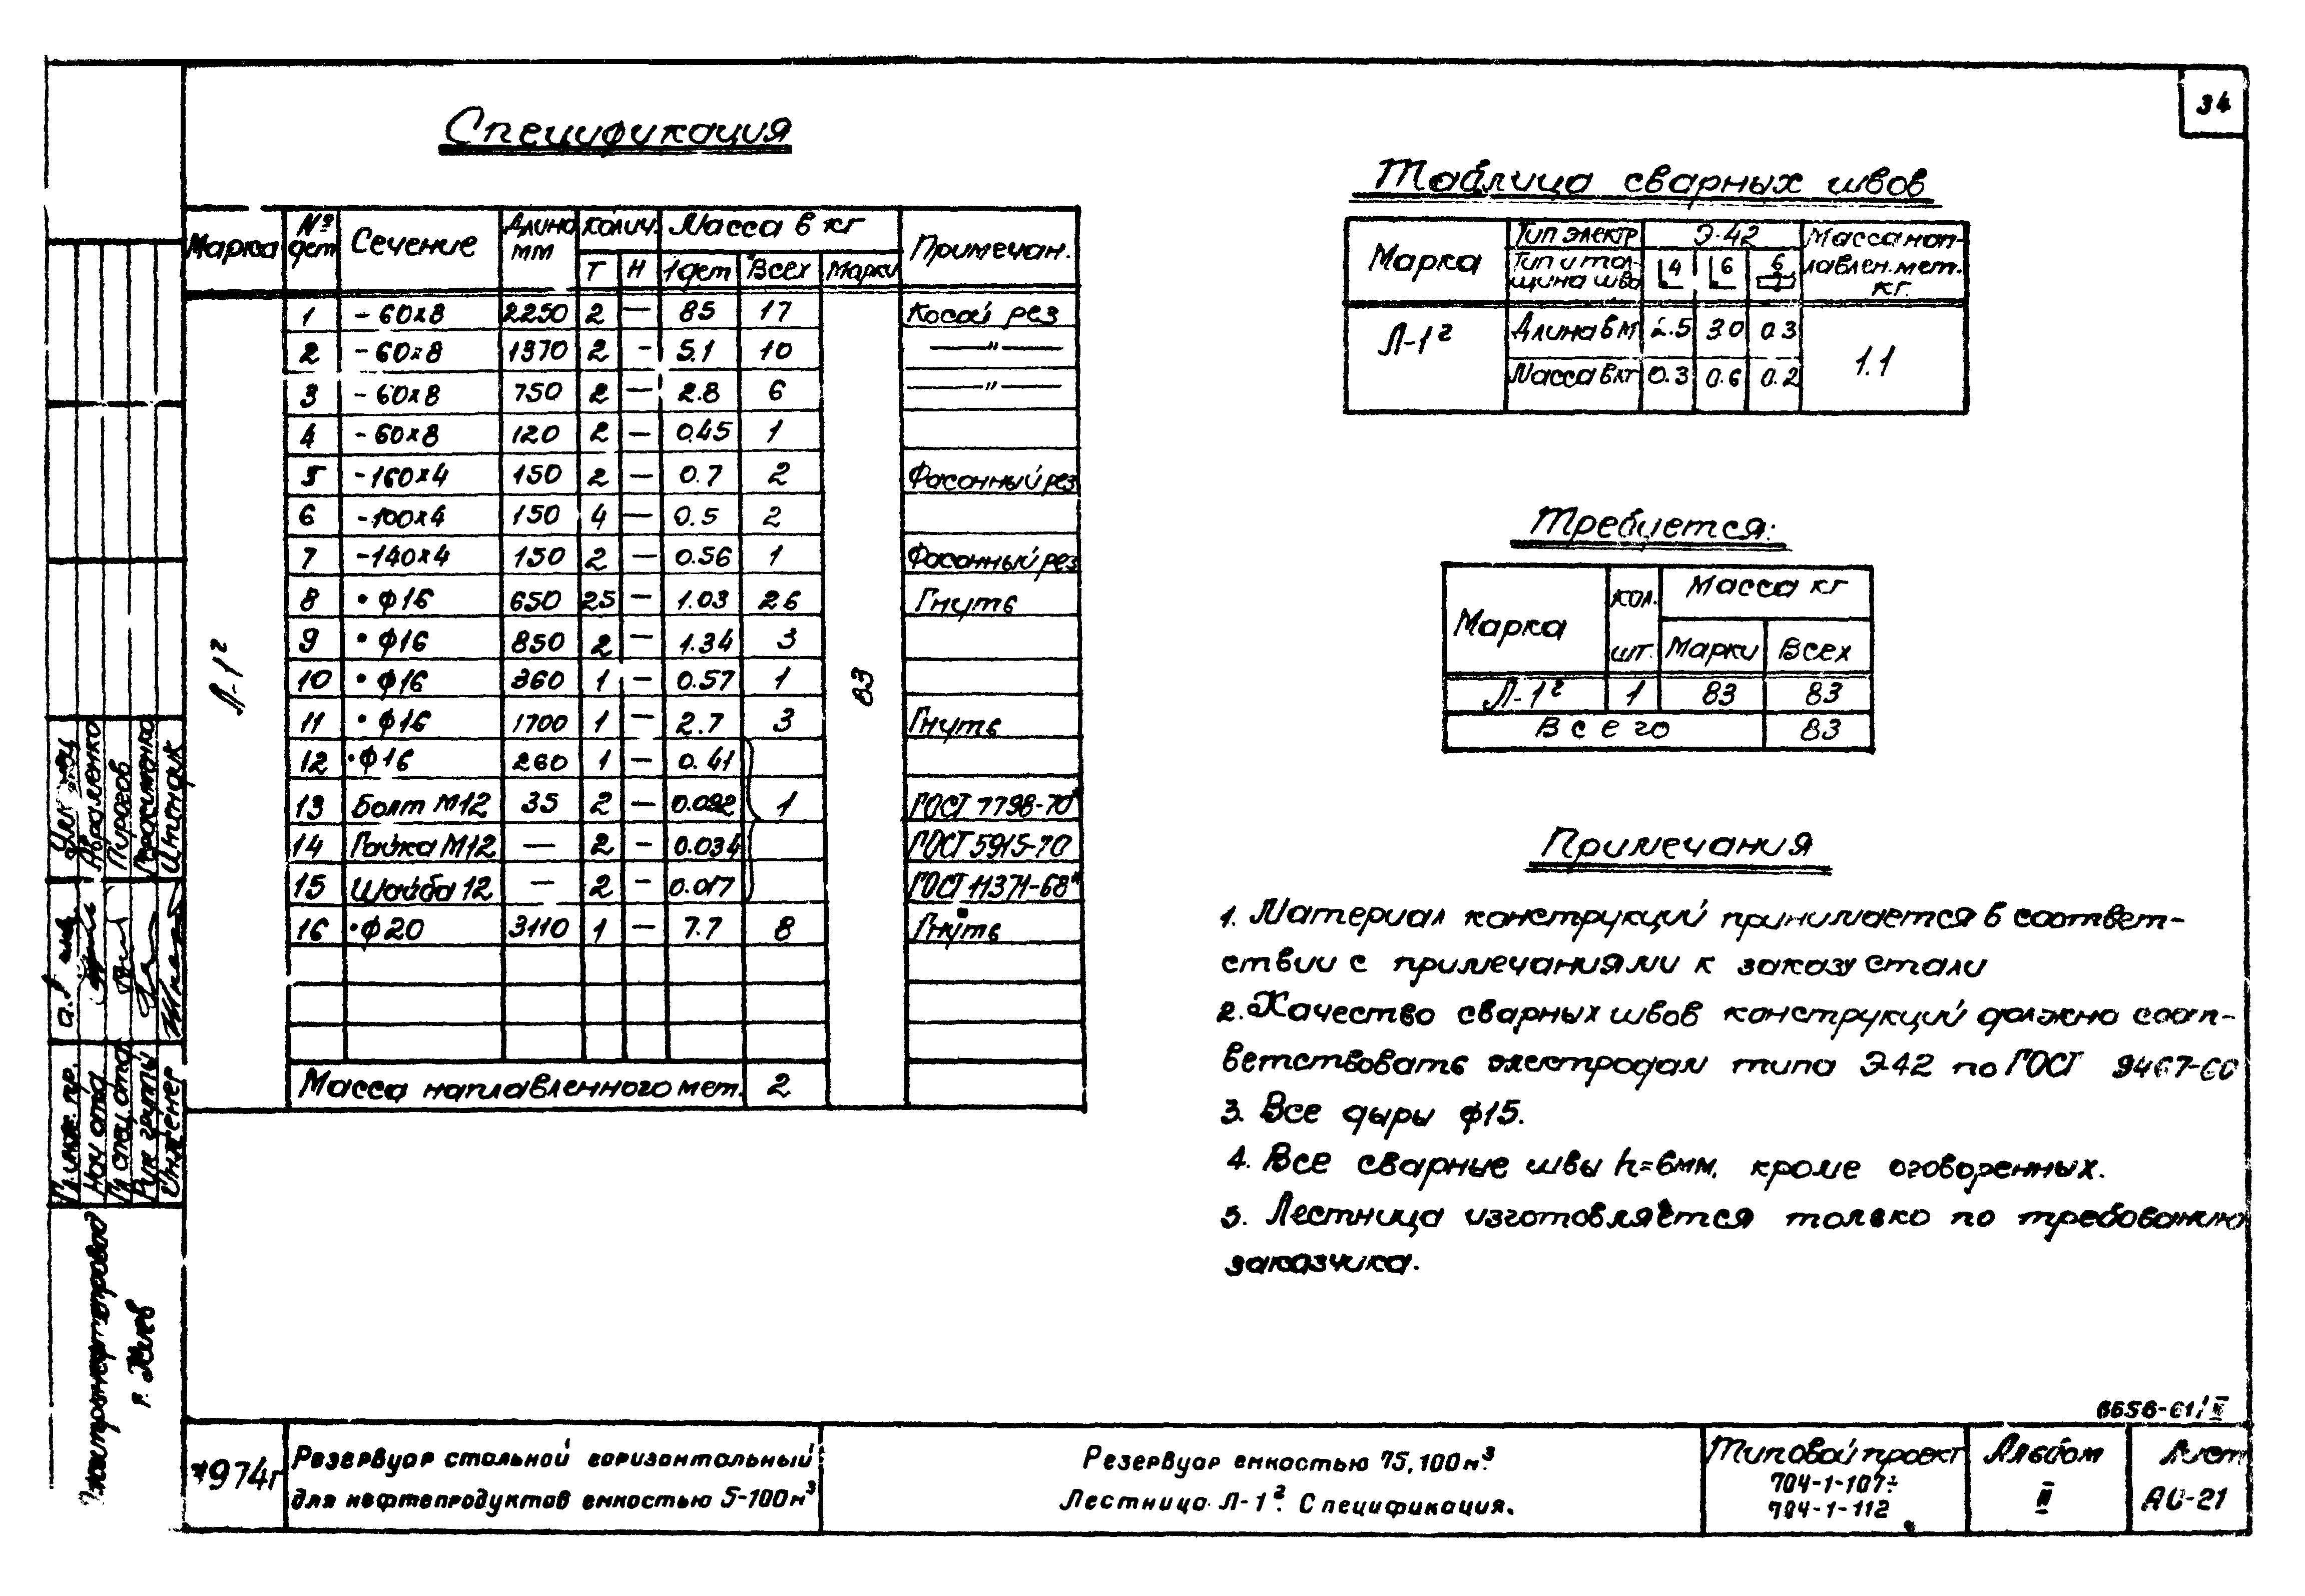 34
Спецификация
Марка № дет Сечение Длина мм Колич. Масса в кг Примечан.
Т Н 1дет Всех Марки
1 -60x8 2250 2 — 85 17 Косой рез
2 -60x8 1370 2 - 5.1 10 —"—
3 -60x8 750 2 — 2.8 6 —"—
4 -60x8 120 2 — 0.45 1
5 -160x4 150 2 — 0.7 2 Фасонный рез
6 -100x4 150 4 — 0.5 2
7 -140x4 150 2 — 0.56 1 Фасонный рез
8 • ф16 650 25 — 1.03 26 Гнуть
9 • ф16 850 2 — 1.34 3
Л-1г 83
10 • ф16 360 1 — 0.57 1
11 • ф16 1700 1 — 2.7 3 Гнуть
12 •ф16 260 1 — 0.41
13 Болт М12 35 2 — 0.092 1 ГОСТ 7798-70*
14 Гайка М12 — 2 - 0.034 ГОСТ 5915-70
15 Шайба 12 — 2 - 0.017 ГОСТ 11371-68*
16 •ф20 3110 1 — 7.7 8 Гнуть
Масса наплавленного мет. 2
Таблица сварных швов
Марка Тип электр Э-42 Масса нап-
Тип и тол- 4 6 6 лавлен.мет.
щина шва кг.
Л-1г Длина в м 2.5 30 0.3 1.1
Масса в кг 0.3 0.6 0.2
Требуется:
Марка кол. шт. Масса кг
Марки Всех
Л-1г 1 83 83
Всего 83
Примечания
1. Материал конструкций принимается в соответ-
ствии с примечаниями к заказу стали
2. Качество сварных швов конструкций должно соот-
ветствовать электродам типа Э-42 по ГОСТ 9467-60
3. Все дыры ф15.
4. Все сварные швы h=6мм, кроме оговоренных.
5. Лестница изготовляется только по требованию
заказчика.
6656-61/II
1974г
Резервуар стальной горизонтальный
для нефтепродуктов емкостью 5-100м³
Резервуар емкостью 75, 100м³.
Лестница Л-1г. Спецификация.
Типовой проект
704-1-107÷
704-1-112
Альбом
II
Лист
АС-21
Гл. инж. пр.
Нач отд Авраменко
Гл спец. отд Пирогов
Рук группы Герасименко
Инженер Шпинчик
Южгипронефтепровод
г. Киев